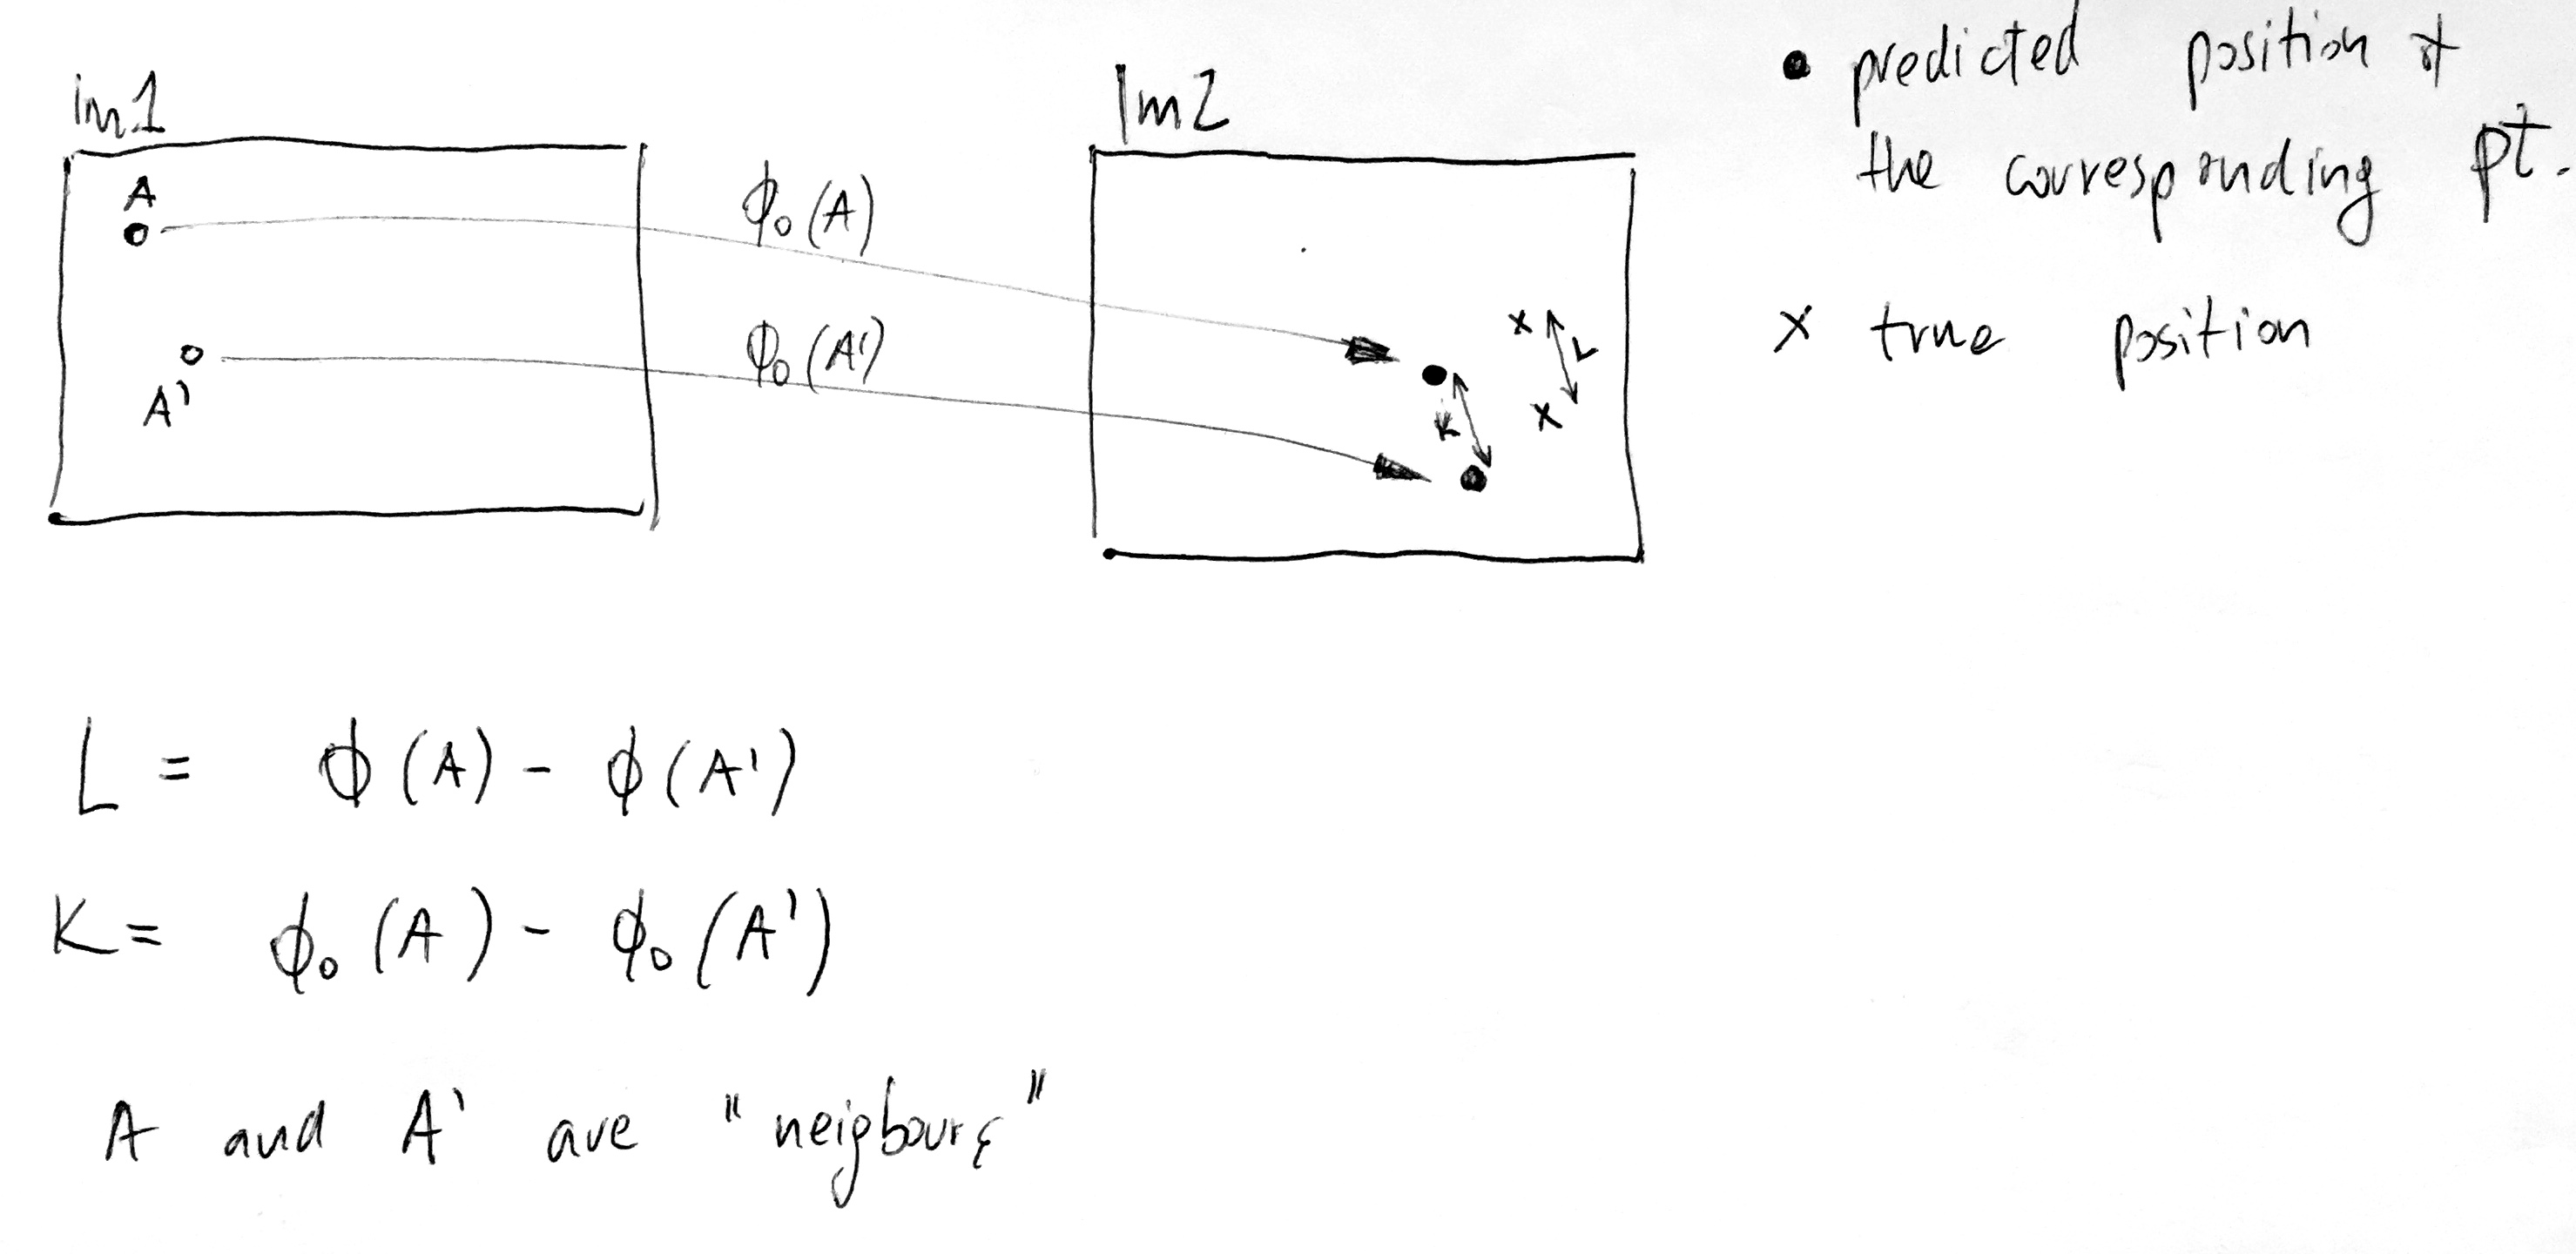 im1
A
A'
ϕ₀(A)
ϕ₀(A')
Im2
K
L
x
x
• predicted position of
the corresponding pt.
x true position
L = ϕ(A) - ϕ(A')
K = ϕ₀(A) - ϕ₀(A')
A and A' are "neigbours"